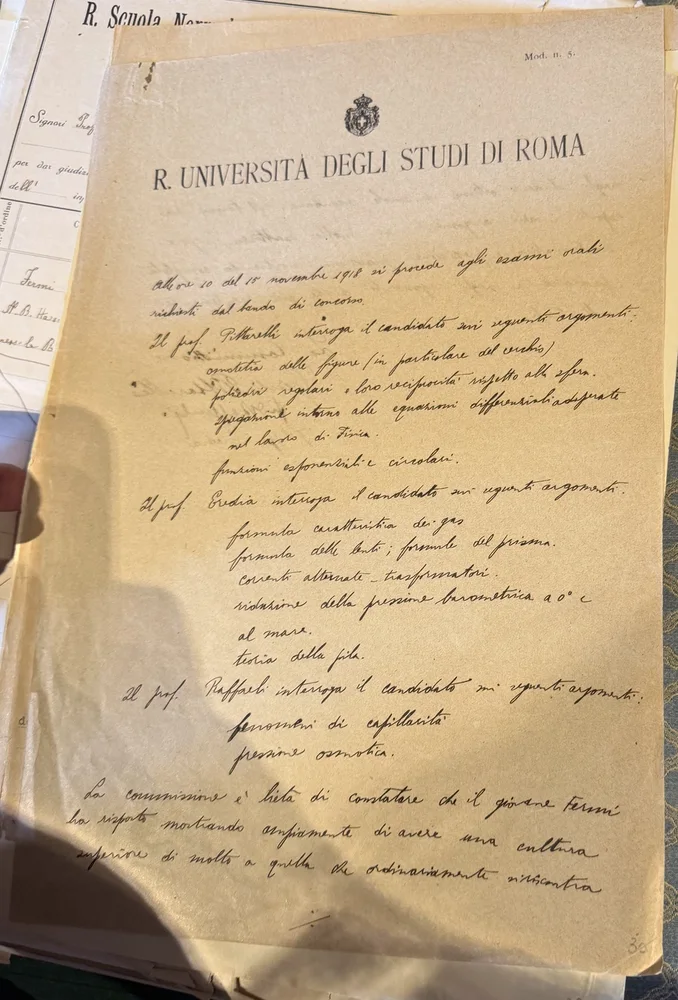 R. Scuola Nor
Signori
Prof
per dar giudiz
dell'
d'ordine
Fermi
Mod. n. 5.
R. UNIVERSITÀ DEGLI STUDI DI ROMA
Alle ore 10 del 15 novembre 1918 si procede agli esami orali
richiesti dal bando di concorso.
Il prof. Pittarelli interroga il candidato sui seguenti argomenti:
omotetia delle figure (in particolare del cerchio)
poliedri regolari e loro reciprocità rispetto alla sfera.
spiegazione intorno alle equazioni differenziali adoperate
nel lavoro di Fisica.
funzioni esponenziali e circolari.
Il prof. Eredia interroga il candidato sui seguenti argomenti:
formula caratteristica dei gas
formula delle lenti; formule del prisma.
correnti alternate - trasformatori.
riduzione della pressione barometrica a 0° e
al mare.
teoria della pila.
Il prof. Raffaeli interroga il candidato sui seguenti argomenti:
fenomeni di capillarità
pressione osmotica.
La commissione è lieta di constatare che il giovane Fermi
ha risposto mostrando ampiamente di avere una cultura
superiore di molto a quella che ordinariamente si riscontra
30